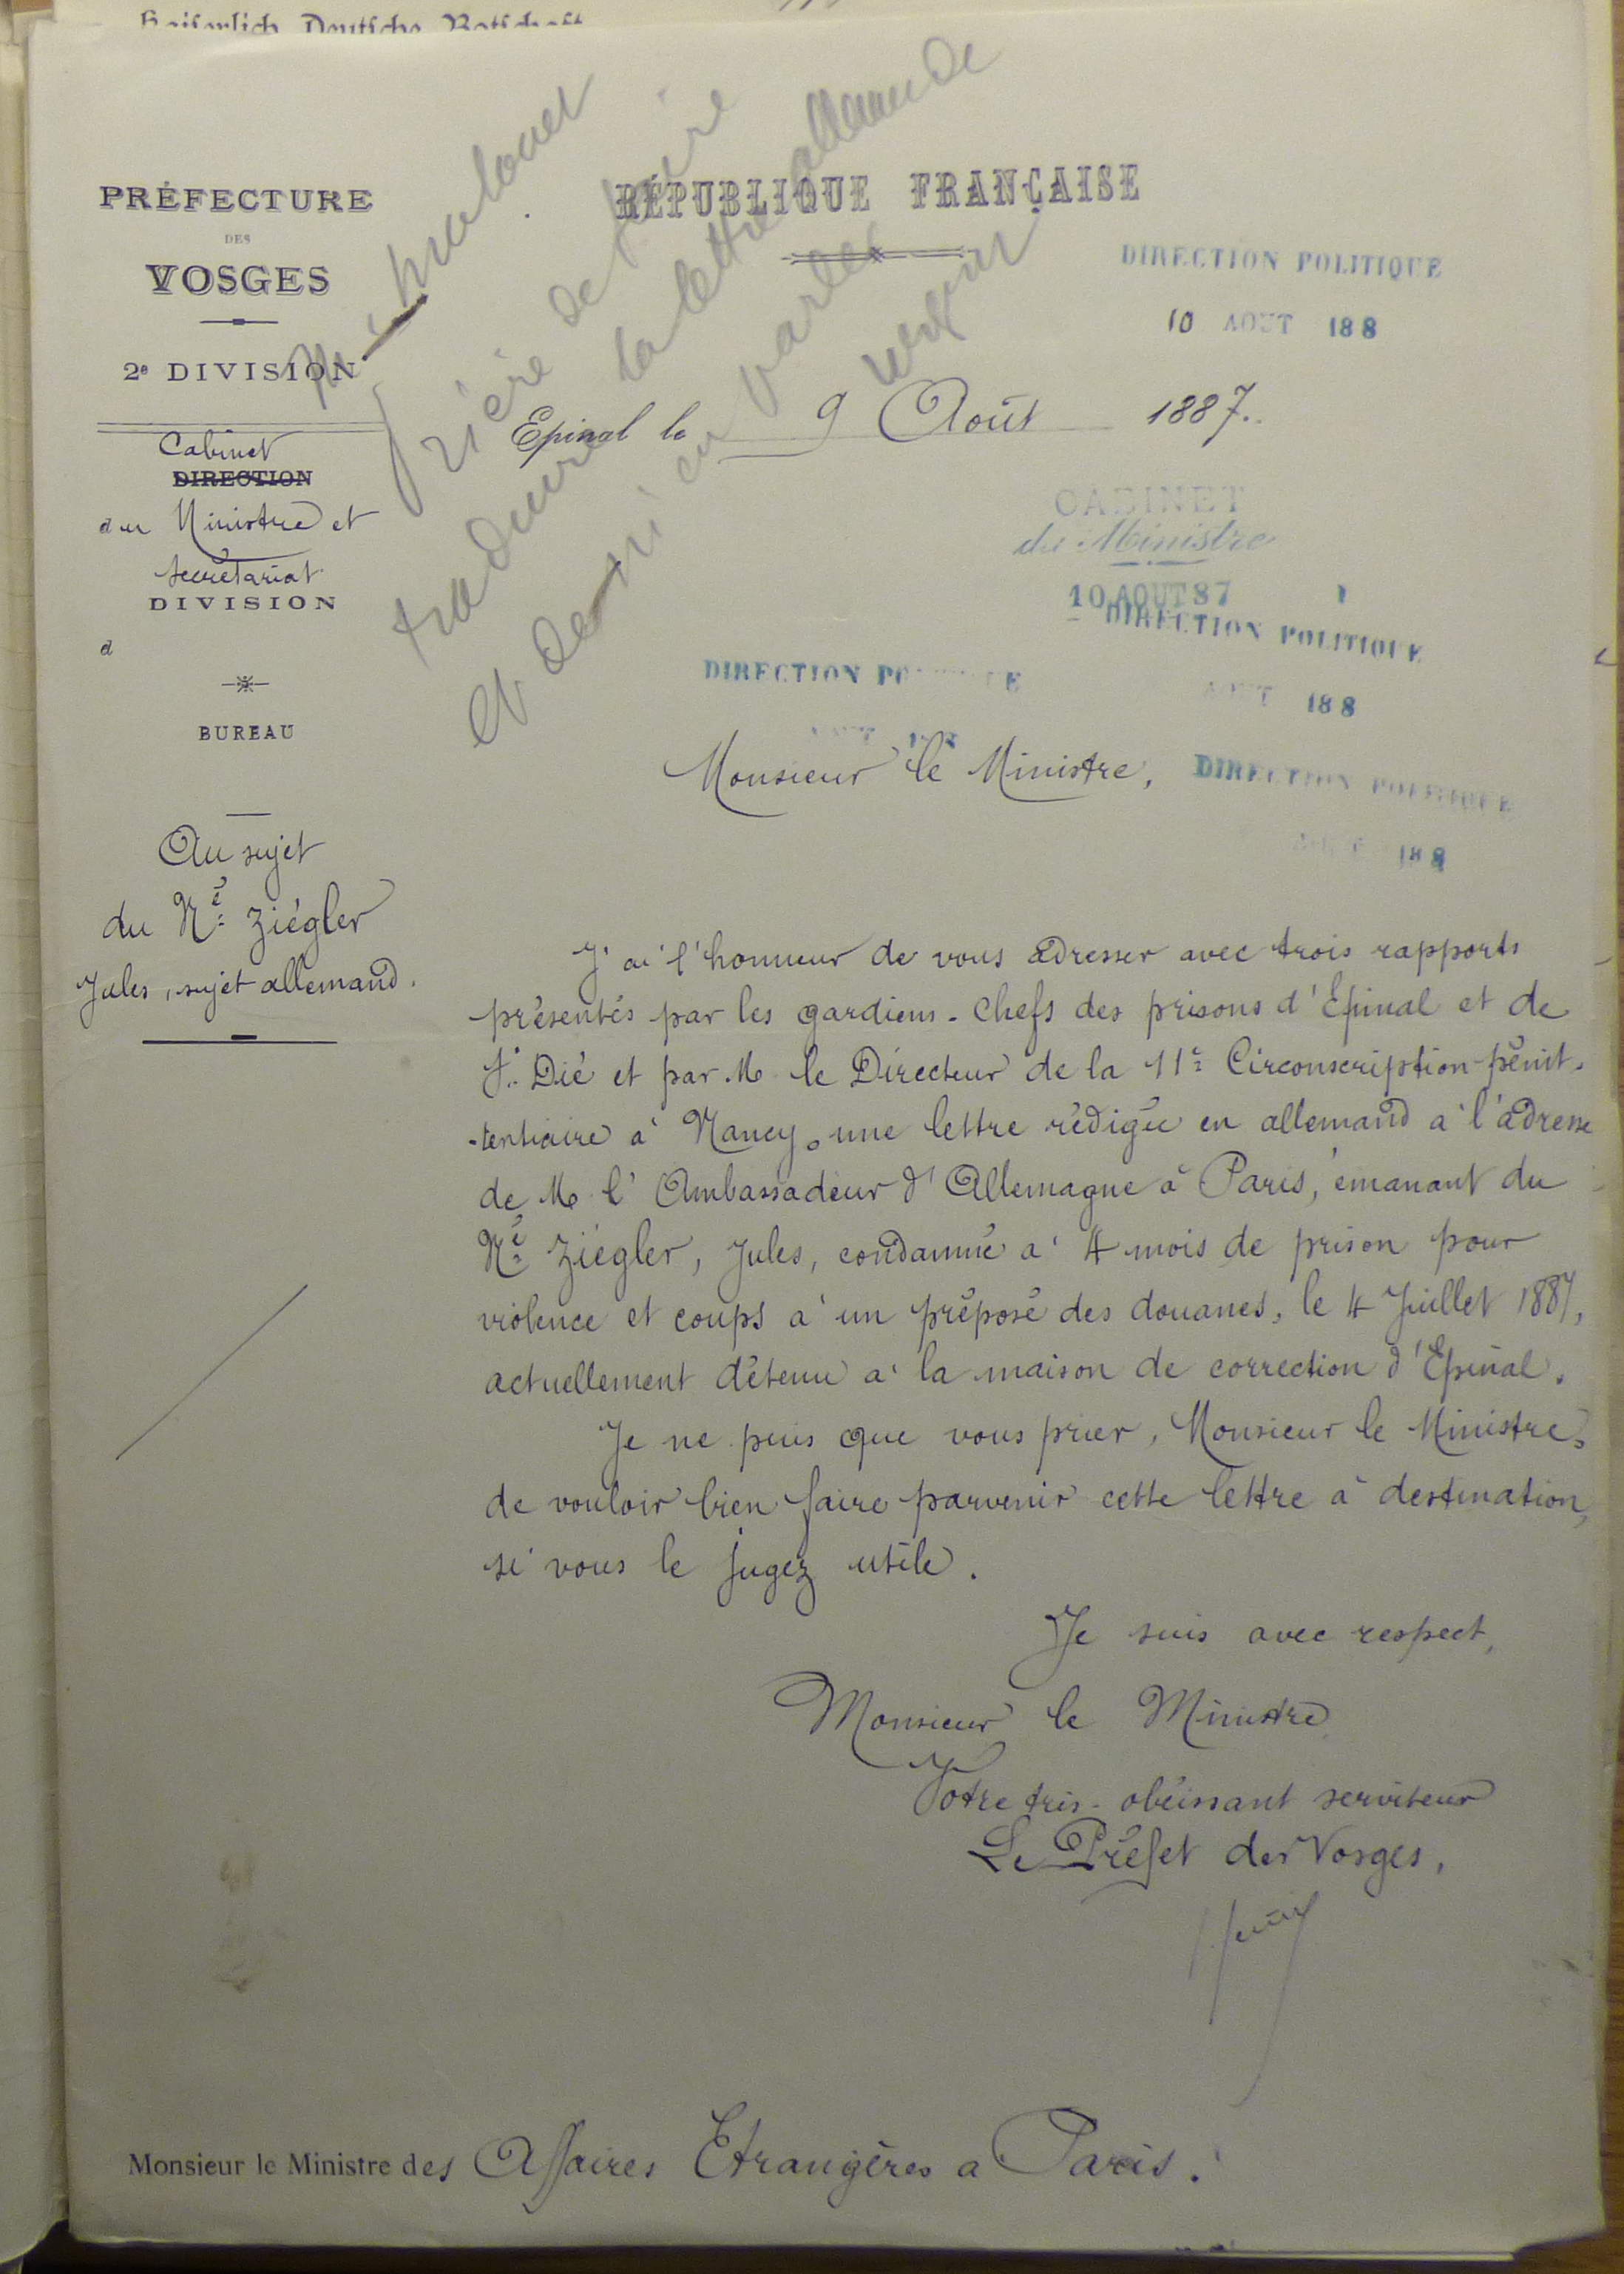 Kaiserlich Deutsche Botschaft
PRÉFECTURE
DES
VOSGES
2e DIVISION
Cabinet
DIRECTION
du Ministre et
Secrétariat
DIVISION
d
BUREAU
Au sujet
du Né Ziégler
Jules, sujet allemand.
Prière de faire
traduire la lettre allemande
et de m'en parler
RÉPUBLIQUE FRANÇAISE
DIRECTION POLITIQUE
10 AOUT 188
Epinal le 9 Août 1887.
CABINET
du Ministre
10 AOUT 87
DIRECTION POLITIQUE
AOUT 188
DIRECTION POLITIQUE
Monsieur le Ministre,
DIRECTION POLITIQUE
188
J'ai l'honneur de vous adresser avec trois rapports
présentés par les gardiens-chefs des prisons d'Epinal et de
St. Dié et par M. le Directeur de la 11e Circonscription pénit-
-tentiaire à Nancy, une lettre rédigée en allemand à l'adresse
de M. l'Ambassadeur d'Allemagne à Paris, émanant du
Né Ziégler, Jules, condamné à 4 mois de prison pour
violence et coups à un préposé des douanes, le 4 Juillet 1887,
actuellement détenu à la maison de correction d'Epinal.
Je ne puis que vous prier, Monsieur le Ministre,
de vouloir bien faire parvenir cette lettre à destination,
si vous le jugez utile.
Je suis avec respect,
Monsieur le Ministre
Votre très-obéissant serviteur
Le Préfet des Vosges,
Monsieur le Ministre des Affaires Etrangères a Paris.